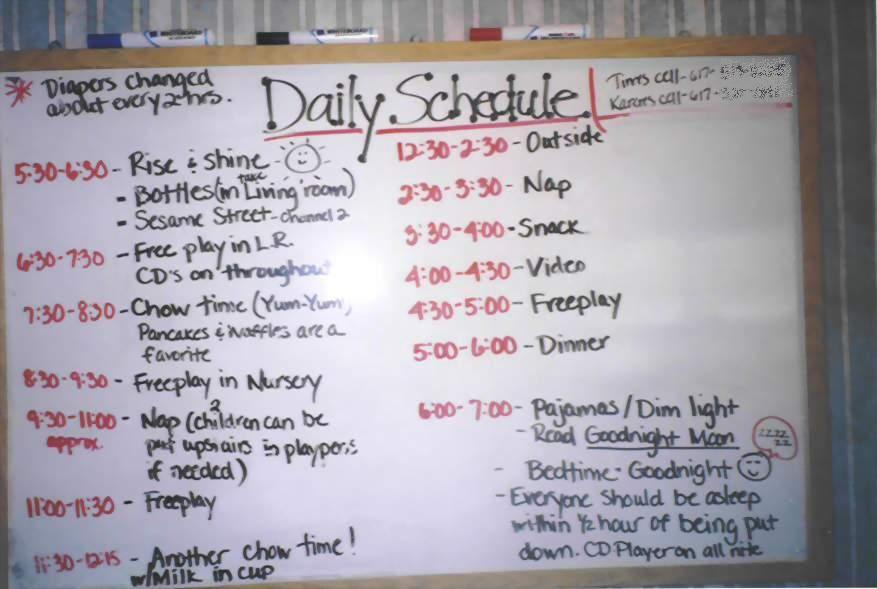 Daily Schedule
Tim's cell-617-
Karen's cell-617-
* Diapers changed
about every 2 hrs.
5:30-6:30 - Rise & shine
- Bottles (in Living room)
take
- Sesame Street - channel 2
6:30-7:30 - Free play in L.R.
CD's on throughout
7:30-8:30 - Chow time (Yum-Yum)
Pancakes & Waffles are a
favorite
8:30-9:30 - Freeplay in Nursery
9:30-11:00 - Nap (3 children can be
approx. put upstairs in playpens
if needed)
11:00-11:30 - Freeplay
11:30-12:15 - Another chow time!
w/Milk in cup
12:30-2:30 - Outside
2:30-3:30 - Nap
3:30-4:00 - Snack
4:00-4:30 - Video
4:30-5:00 - Freeplay
5:00-6:00 - Dinner
6:00-7:00 - Pajamas/Dim light
- Read Goodnight Moon
zzzz
zz
- Bedtime - Goodnight
- Everyone should be asleep
within 1/2 hour of being put
down. CD Player on all nite